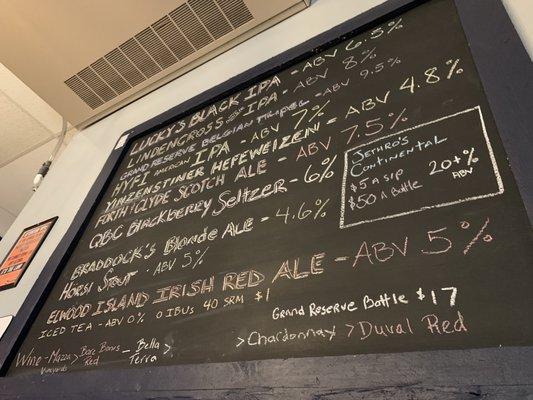 LUCKY'S BLACK IPA - ABV 6.5%
LINDENCROSS IPA - ABV 8%
GRAND RESERVE BELGIAN TRIPEL - ABV 9.5%
HYFI AMERICAN IPA - ABV 7%
YINZENSTINER HEFEWEIZEN - ABV 4.8%
FORTH & CLYDE SCOTCH ALE - ABV 7.5%
QBC Blackberry Seltzer - 6%
BRADDOCK'S Blonde ALE - 4.6%
Horst Stout - ABV 5%
ELWOOD ISLAND IRISH RED ALE - ABV 5%
ICED TEA - ABV 0% 0 IBUs 40 SRM $1
Wine - Mazza Vineyards > Bare Bones Red - Bella Terra >
JETHRO'S
CONTINENTAL
$5 A SIP
$50 A Bottle
20+% ABV
Grand Reserve Bottle $17
> Chardonnay > Duval Red